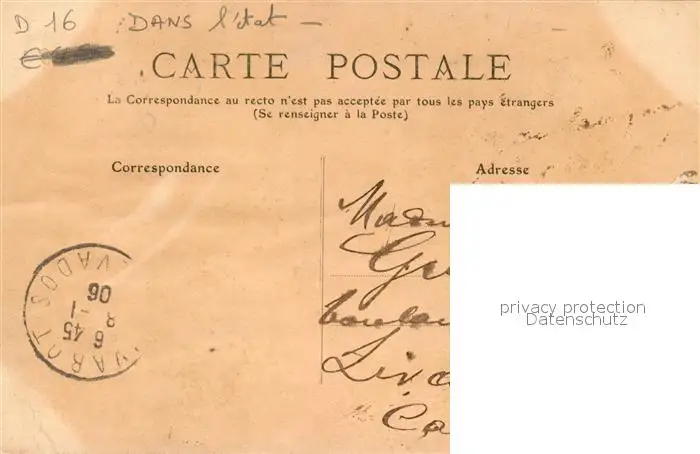 D 16 DANS l'état —
CARTE POSTALE
La Correspondance au recto n'est pas acceptée par tous les pays étrangers
(Se renseigner à la Poste)
Correspondance
Adresse
Mada
Gr
boulan
Liva
Ca
VAROT
VADOS
6 45
8 -1
06
privacy protection
Datenschutz